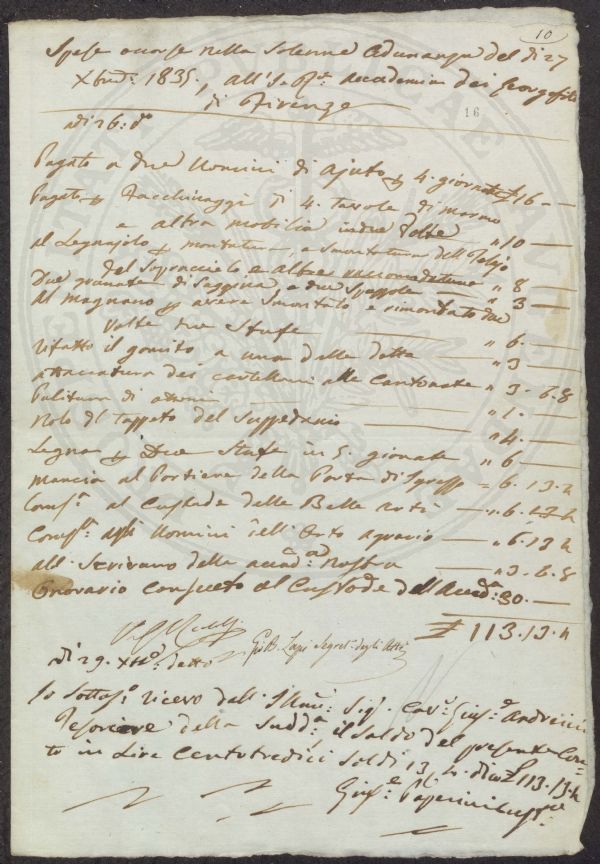 10
Spese occorse nella Solenne Adunanza del dì 27
Xbre: 1835, all' I. e R. Accademia dei Georgofili
di Firenze
16
Dì 26: do
Pagato a due Uomini di ajuto p 4. giornate £ 16 —
Pagato p Facchinaggi di 4. Tavole di marmo
e altra mobilia in due volte — " 10 —
Al Legnajolo p montatura, e smontatura del Palco
del Soprancielo e altre — " 8 —
Due granate di Saggina, e due Spazzole — " 3 —
Al magnano p avere Smontato e rimontato due
volte due Stufe — " 6. —
rifatto il gomito a una delle dette — " 3 —
attaccatura dei cartelloni alle Cantonate " 3 - 6. 8
Pulitura di — " 1. —
Nolo di Tappeto del Suppedanio — " 4. —
Legna p Due Stufe in 5. giornate " 6 —
Mancia al Portiere della Porta d'Ingresso " 6. 13. 4
Comp.a al Custode delle Belle Arti — " 6. 13. 4
Comp.a agli Uomini dell' Orto agrario — " 6. 13 4
all. Scrivano della Accad.a Nostra — " 3. 6. 8
Onorario consueto al Custode dell Accad.a 30. —
£ 113. 13. 4
Gio. B. Lapi Segret. degli Atti
Dì 29. Xbre detto
Io Sottos.o ricevo dall' Illmo: Sig. Cav. Gius.e Andreini
Tesoriere della Sudd.a il Saldo del presente Con-
to in Lire Centotredici Soldi 13. 4. dico £ 113. 13. 4
Gius.e Paperini Cust.e